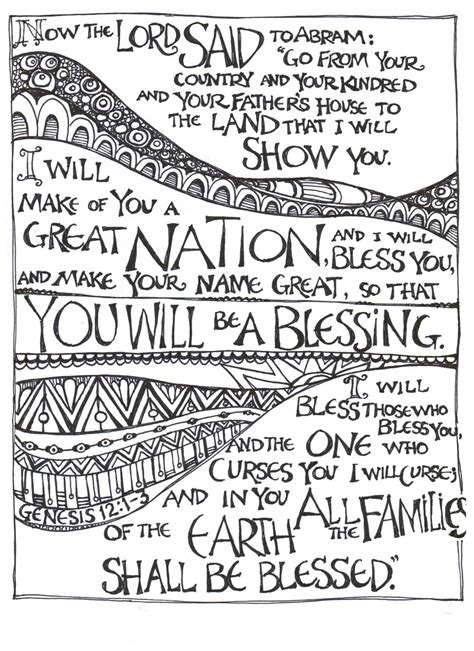 Now the LORD SAID to Abram:
"Go from your
country and your kindred
and your father's house to
the LAND that I will
SHOW you.
I will
make of you a
GREAT NATION, and I will
bless you,
and make your name great, so that
YOU WILL be A BLESSING.
I will
bless those who
bless you,
and the ONE who
curses you I will curse;
and in you ALL the FAMILIES
of the EARTH
SHALL BE BLESSED."
GENESIS 12:1-3